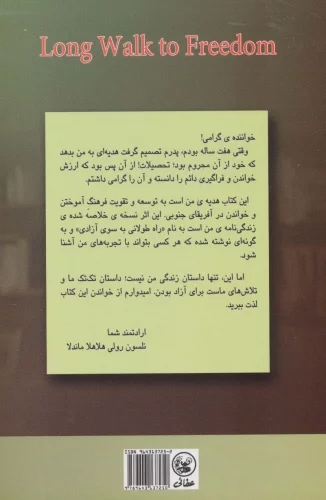 Long Walk to Freedom
خواننده ی گرامی!
وقتی هفت ساله بودم، پدرم تصمیم گرفت هدیه‌ای به من بدهد
که خود از آن محروم بود؛ تحصیلات! از آن پس بود که ارزش
خواندن و فراگیری دائم را دانسته و آن را گرامی داشتم.
این کتاب هدیه ی من است به توسعه و تقویت فرهنگ آموختن
و خواندن در آفریقای جنوبی. این اثر نسخه ی خلاصه شده ی
زندگی‌نامه ی من است به نام «راه طولانی به سوی آزادی» و به
گونه‌ای نوشته شده که هر کسی بتواند با تجربه‌های من آشنا
شود.
اما این، تنها داستان زندگی من نیست؛ داستان تک‌تک ما و
تلاش‌های ماست برای آزاد بودن. امیدوارم از خواندن این کتاب
لذت ببرید.
ارادتمند شما
نلسون رولی هلاهلا ماندلا
عطائی